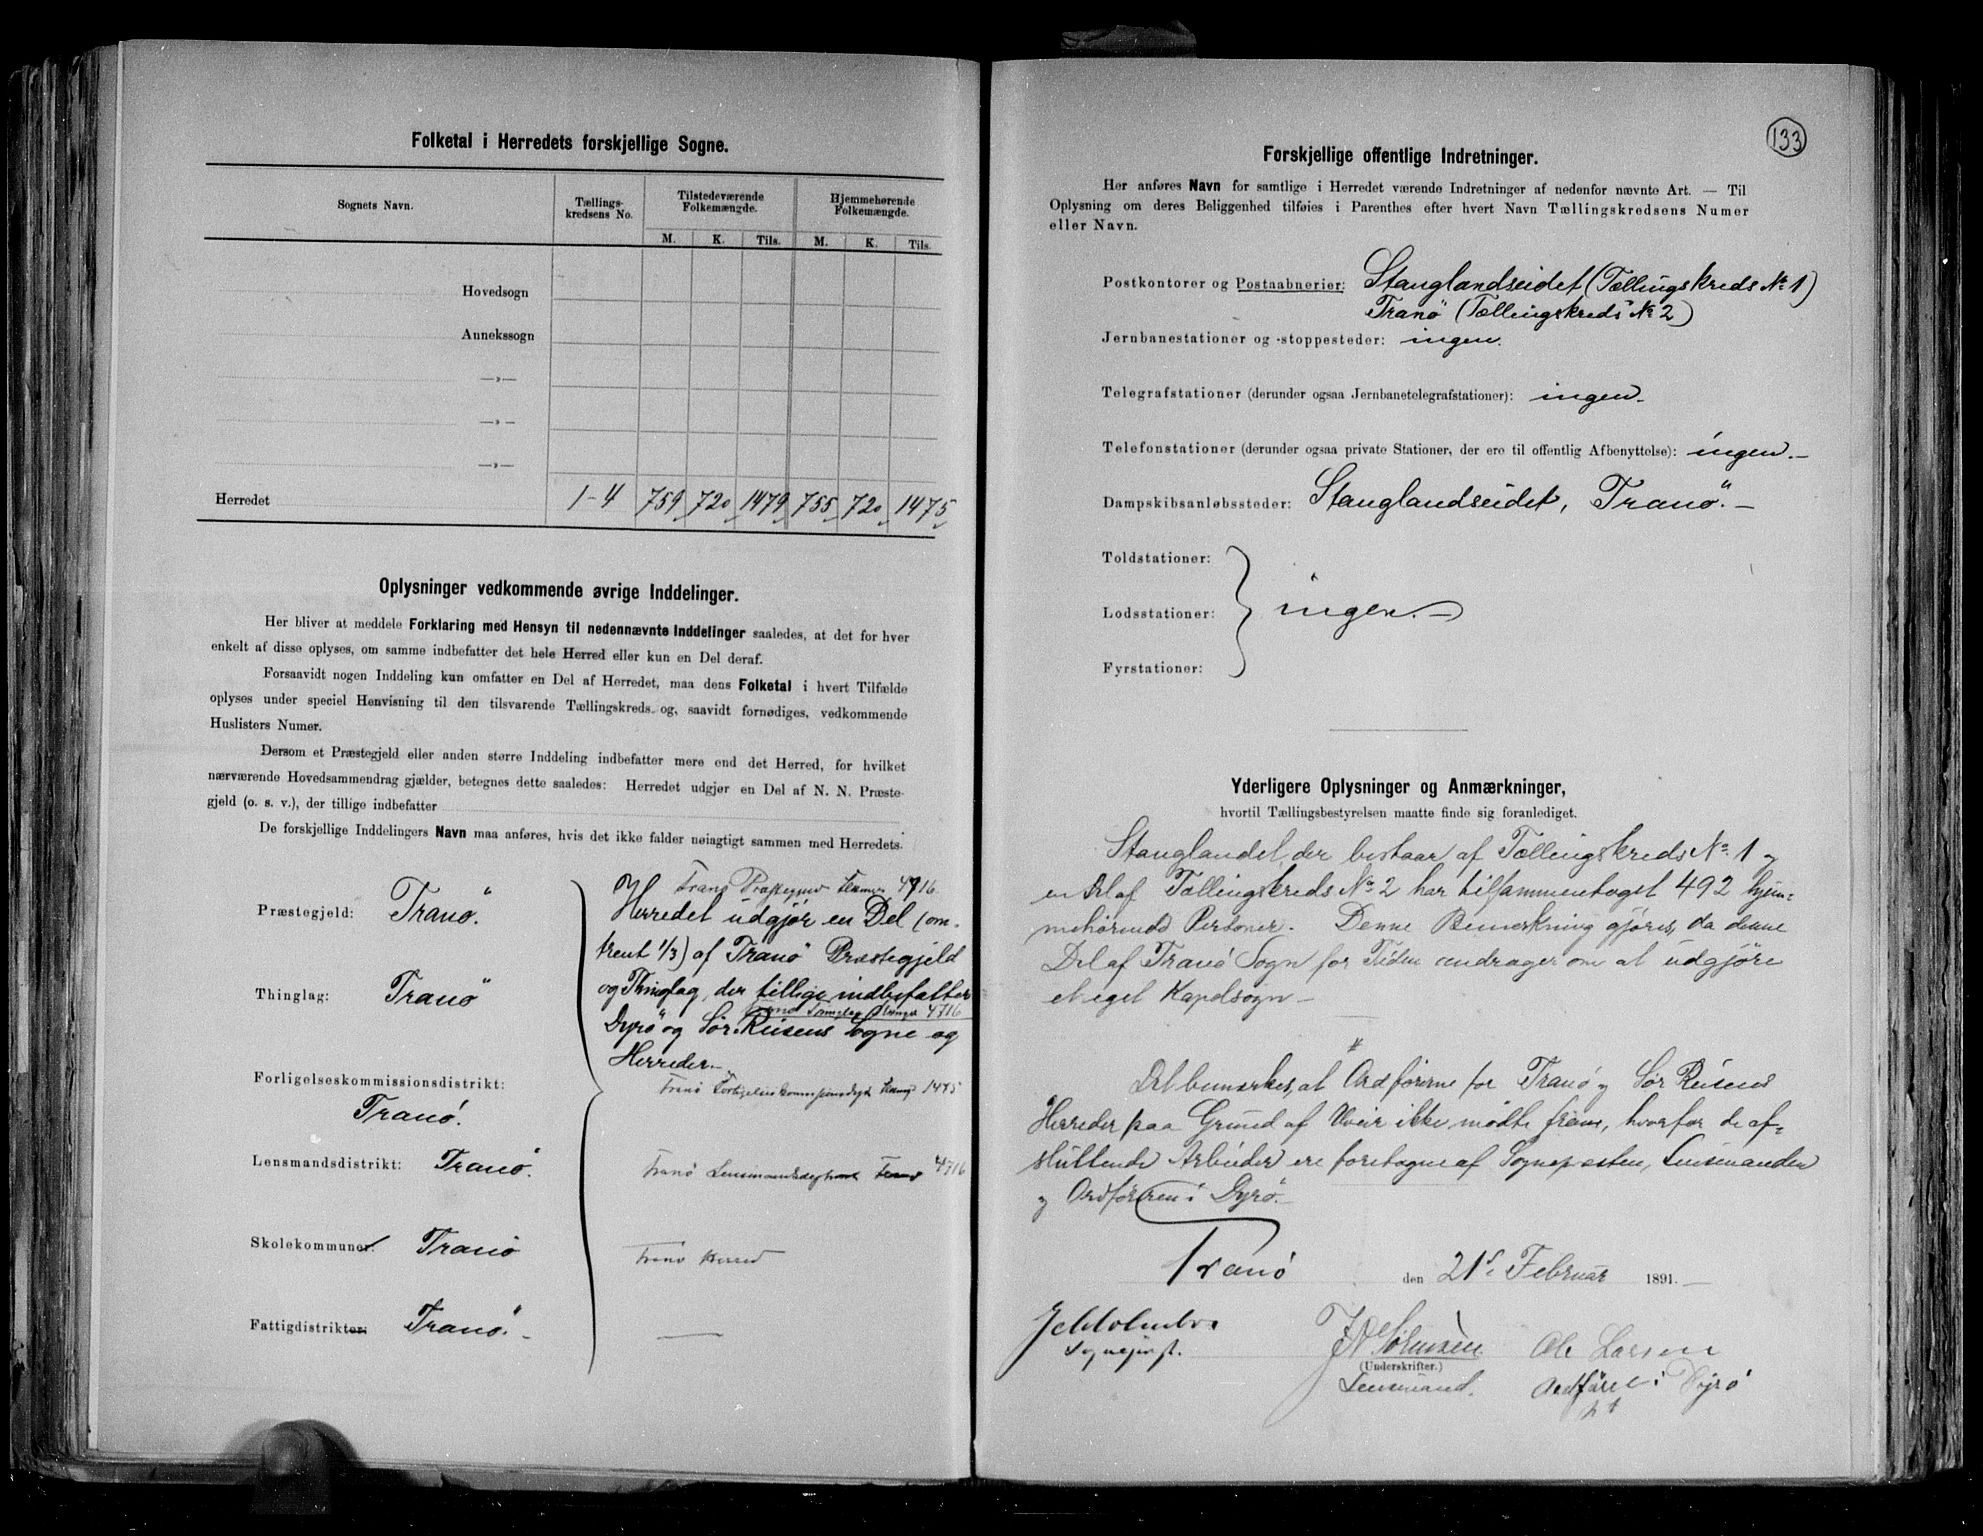 Folketal i Herredets forskjellige Sogne.
Sognets Navn. Tællings-kredsens No. Tilstedeværende Folkemængde. Hjemmehørende Folkemængde.
M. K. Tils. M. K. Tils.
Hovedsogn
Annekssogn
—„—
—„—
—„—
Herredet 1-4 759 720 1479 755 720 1475
Oplysninger vedkommende øvrige Inddelinger.
Her bliver at meddele Forklaring med Hensyn til nedennævnte Inddelinger saaledes, at det for hver
enkelt af disse oplyses, om samme indbefatter det hele Herred eller kun en Del deraf.
Forsaavidt nogen Inddeling kun omfatter en Del af Herredet, maa dens Folketal i hvert Tilfælde
oplyses under speciel Henvisning til den tilsvarende Tællingskreds og, saavidt fornødiges, vedkommende
Huslisters Numer.
Dersom et Præstegjeld eller anden større Inddeling indbefatter mere end det Herred, for hvilket
nærværende Hovedsammendrag gjælder, betegnes dette saaledes: Herredet udgjør en Del af N. N. Præste-
gjeld (o. s. v.), der tillige indbefatter
De forskjellige Inddelingers Navn maa anføres, hvis det ikke falder nøiagtigt sammen med Herredets.
Præstegjeld: Tranö.
Thinglag: Tranö
Forligelseskommissionsdistrikt:
Tranö.
Lensmandsdistrikt: Tranö.
Skolekommuner: Tranö
Fattigdistrikter: Tranö. -
Tranö 4716
Herredet udgjør en Del (om-
trent 1/3) af Tranö Præstegjeld
og Thinglag, der tillige indbefatter
4716
Dyrö og Sör Reisens Sogne og
Herreder.
Tranö 1475
Tranö 4716
Tranö Herred
133
Forskjellige offentlige Indretninger.
Her anføres Navn for samtlige i Herredet værende Indretninger af nedenfor nævnte Art. — Til
Oplysning om deres Beliggenhed tilføies i Parenthes efter hvert Navn Tællingskredsens Numer
eller Navn.
Postkontorer og Postaabnerier: Stanglandseidet (Tællingskreds № 1)
Tranö (Tællingskreds № 2)
Jernbanestationer og -stoppesteder: ingen.
Telegrafstationer (derunder ogsaa Jernbanetelegrafstationer): ingen.
Telefonstationer (derunder ogsaa private Stationer, der ere til offentlig Afbenyttelse): ingen. -
Dampskibsanløbssteder: Stanglandseidet, Tranö. -
Toldstationer:
Lodsstationer: ingen. -
Fyrstationer:
Yderligere Oplysninger og Anmærkninger,
hvortil Tællingsbestyrelsen maatte finde sig foranlediget.
Stanglandet, der bestaar af Tællingskreds № 1 og
en Del af Tællingskreds № 2 har tilsammentaget 492 hjem-
mehørende Personer. Denne Bemerkning gjøres, da denne
Del af Tranö Sogn for Tiden andrager om at udgjöre
et eget Kapelsogn -
Det bemærkes, at Ordførerne for Tranö og Sör Reisens
Herreder paa Grund af Uveir ikke mødte frem, hvorfor de af-
sluttende Arbeider ere foretagne af Sognepresten, Lensmanden
og Ordføreren i Dyrö.
Tranö den 21de Februar 1891. -
Sognepræst.
(Underskrifter.)
Lensmand.
Ole Larsen
Ordförer i Dyrö